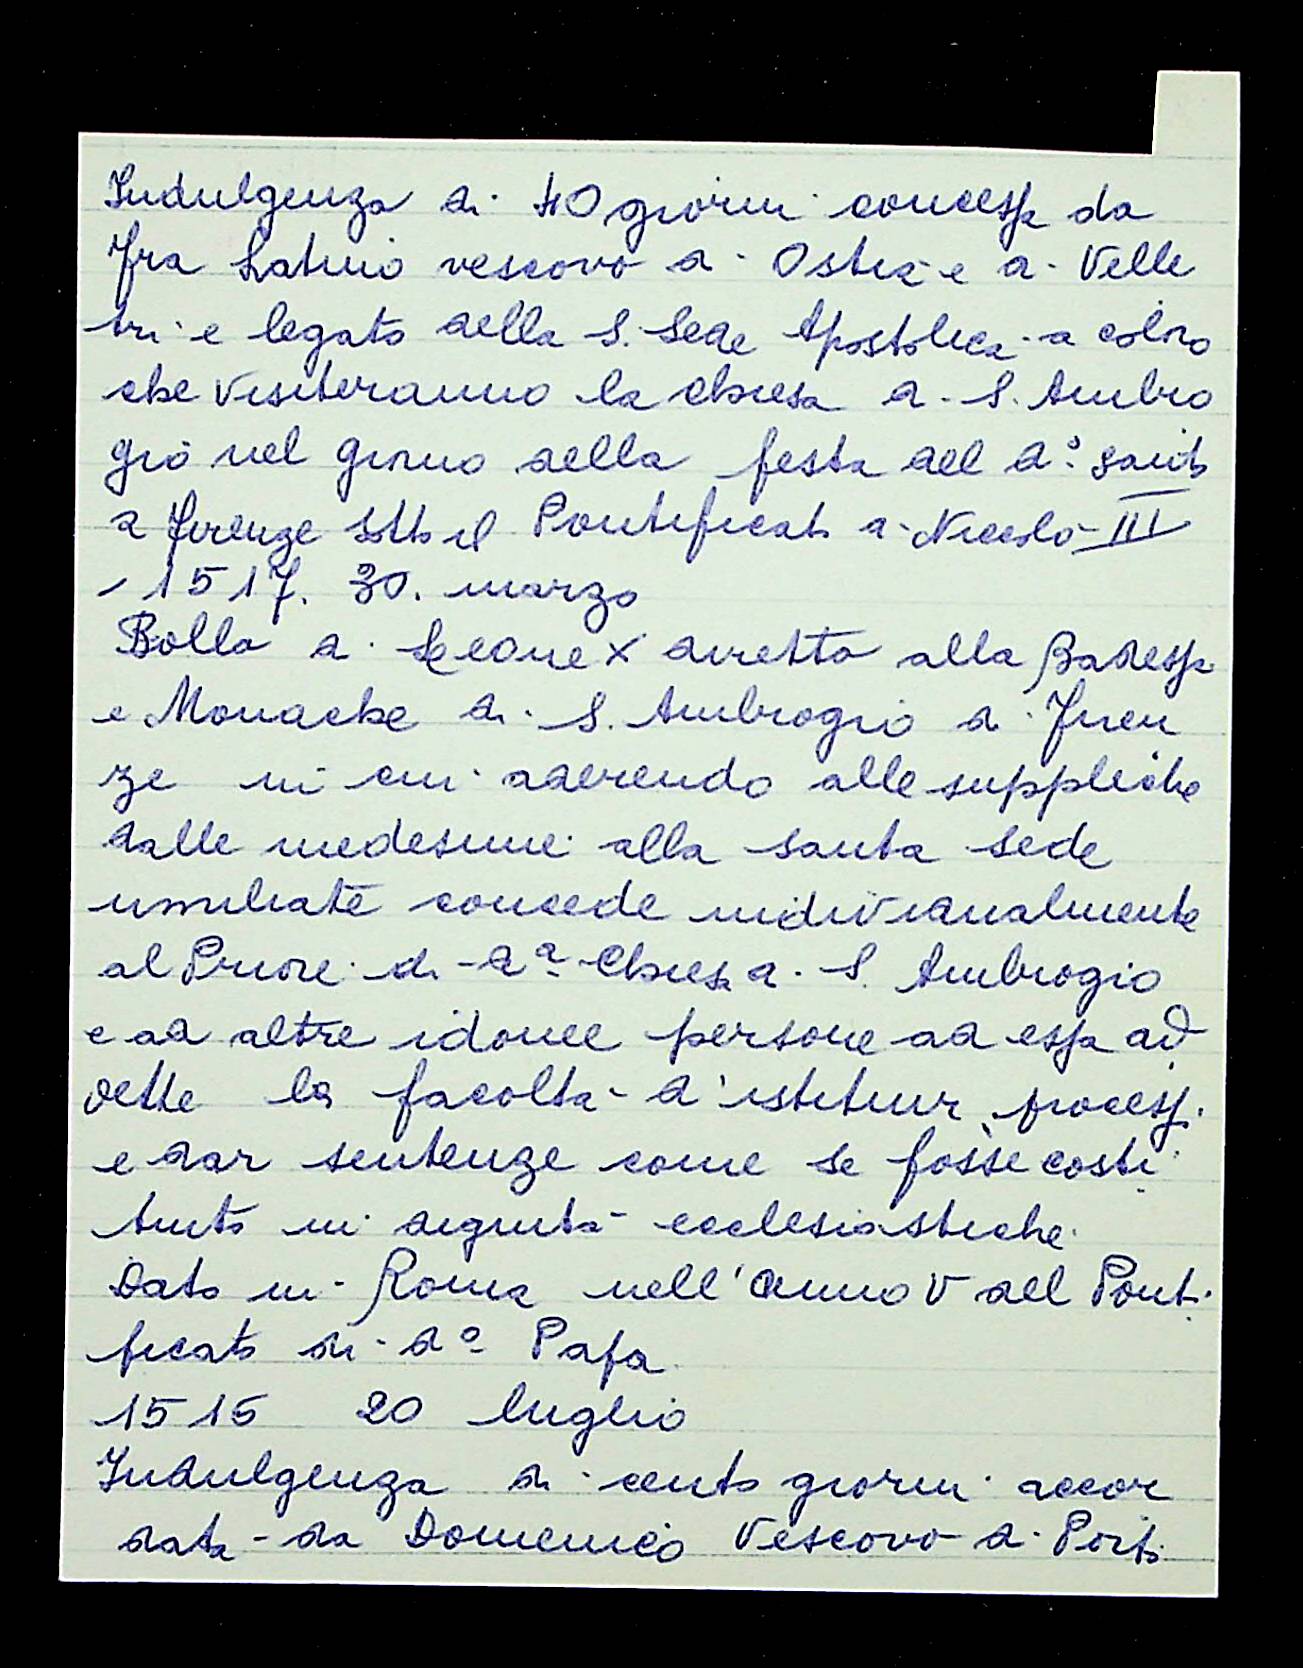 Indulgenza di 40 giorni concessa da
Fra Latino vescovo di Ostia e di Velle
tri e legato della S. Sede Apostolica a coloro
che visiteranno la chiesa di S. Ambro
gio nel giorno della festa del d.º santo
a Firenze sotto il Pontificato di Niccolò III
- 1517. 30. marzo
Bolla di Leone X diretta alla Badessa
e Monache di S. Ambrogio di Firen
ze in cui aderendo alle suppliche
dalle medesime alla santa sede
umiliate concede individualmente
al Priore di dª Chiesa di S. Ambrogio
e ad altre idonee persone ad essa ad
dette la facoltà d'istituir processi
e dar sentenze come se fosse costi
tuito in dignità ecclesiastiche.
Dato in Roma nell'anno V del Ponti
ficato di dº Papa
1515 20 luglio
Indulgenza di cento giorni accor
data da Domenico Vescovo di Porto